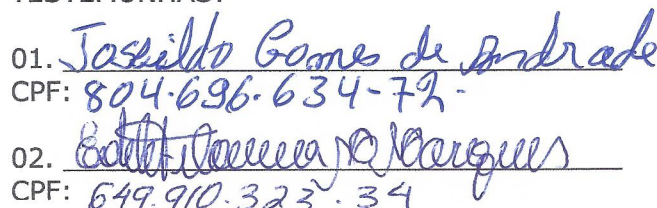 TESTEMUNHAS:
01. Joseildo Gomes de Andrade
CPF: 804.696.634-72.
02. Marques
CPF: 649.910.323.34